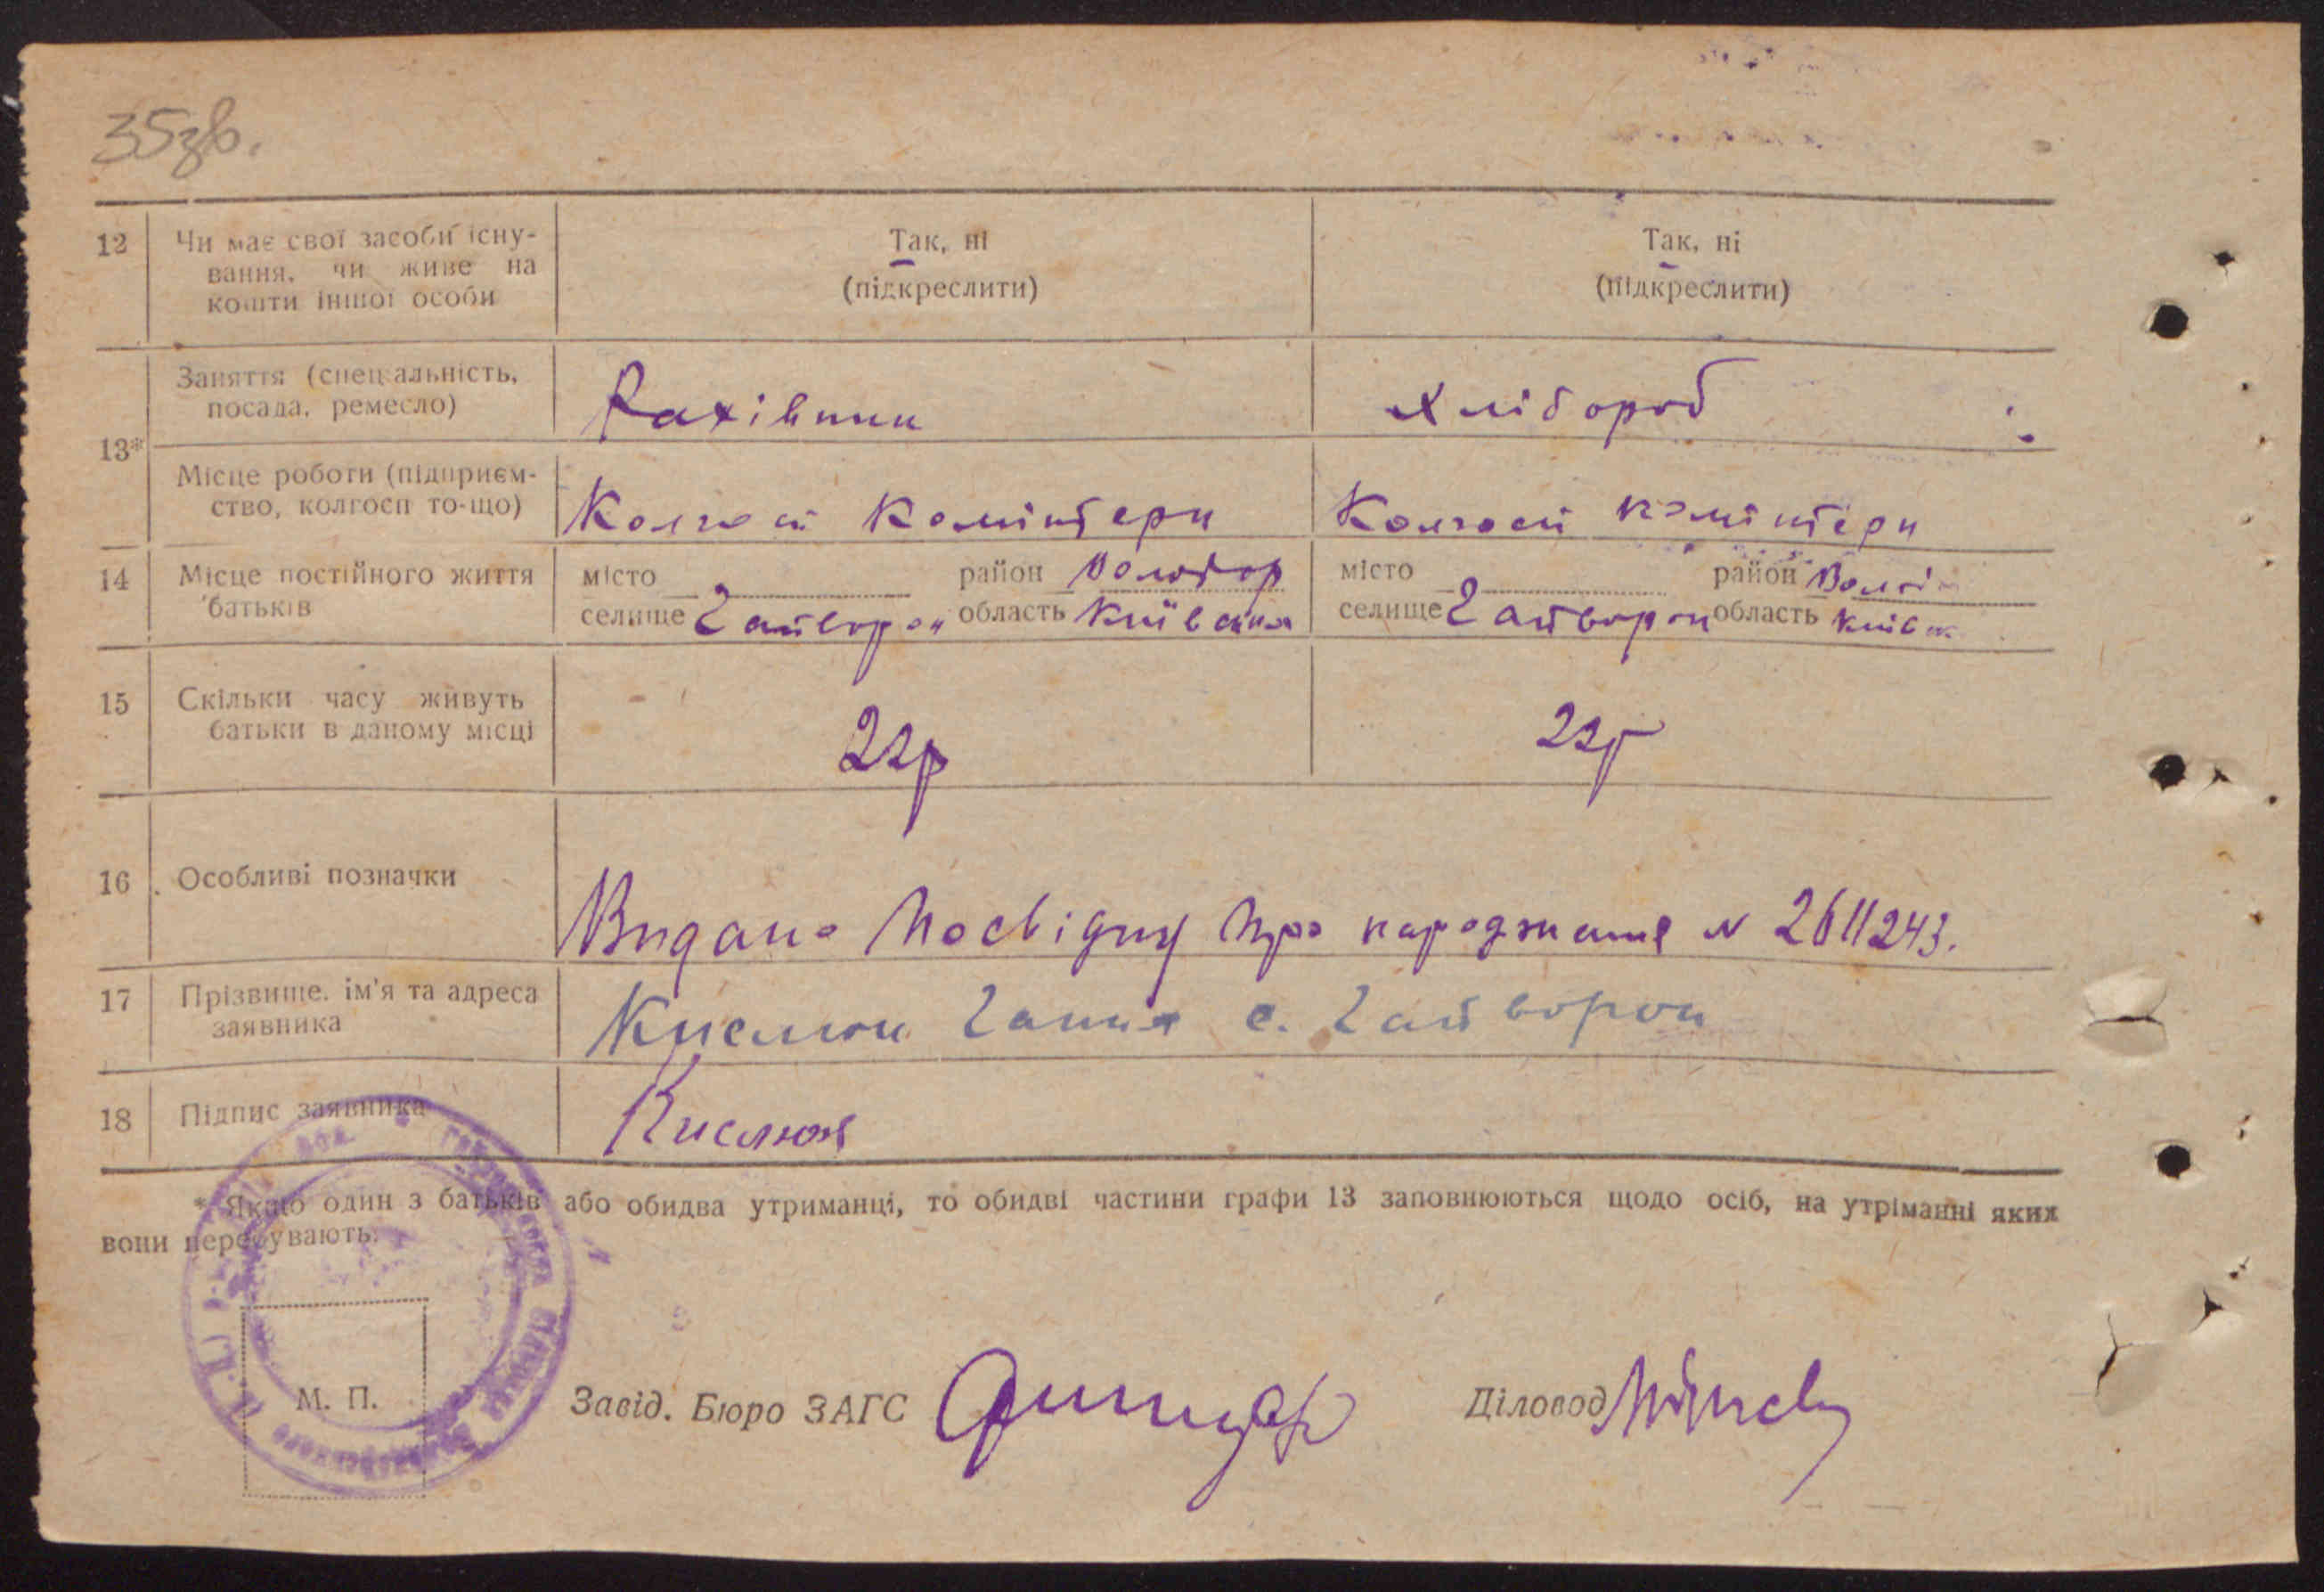 35зв.
12 Чи має свої засоби існу- Так, ні Так, ні
вання, чи живе на (підкреслити) (підкреслити)
кошти іншої особи
Заняття (спеціальність, Рахівник Хлібороб
посада, ремесло)
13*
Місце роботи (підприєм- Колгосп Комінтерн Колгосп Комінтерн
ство, колгосп то-що)
14 Місце постійного життя місто район Володар місто район
батьків селище Гайворон область Київська селище Гайворон область Київск
15 Скільки часу живуть 22р 22р
батьки в даному місці
16 Особливі позначки
Видано посвідку про народження № 2611243.
17 Прізвище, ім'я та адреса Кислюк Ганна с. Гайворон
заявника
18 Підпис заявника Кислюк
* Якщо один з батьків або обидва утриманці, то обидві частини графи 13 заповнюються щодо осіб, на утріманні яких
вони перебувають.
М. П. Завід. Бюро ЗАГС Діловод